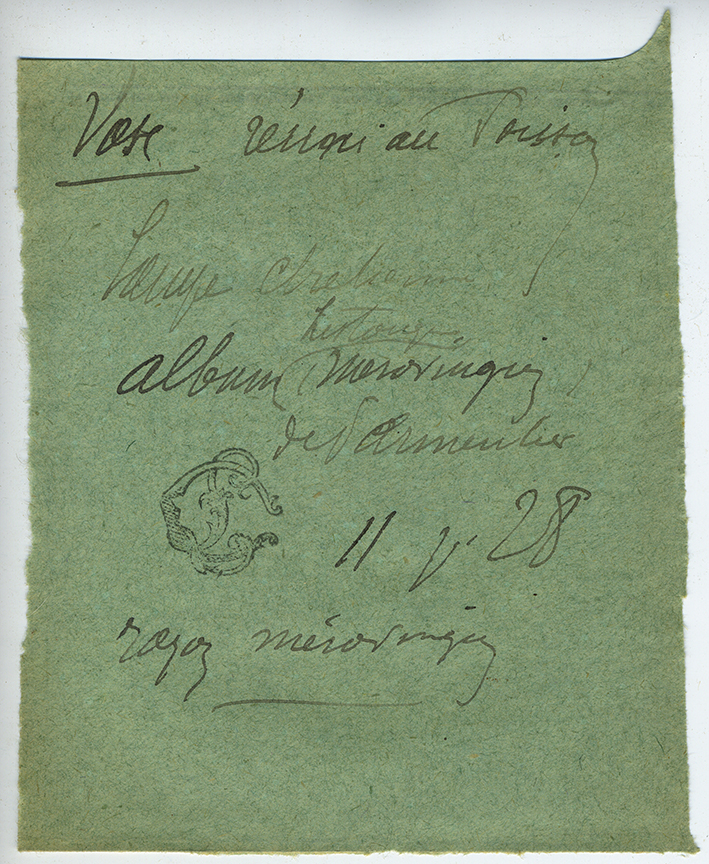 Vase réuni au Poisson
Lampe chrétienne
historique
album mérovingien
de Parmentier
11 p. 28
mérovingien